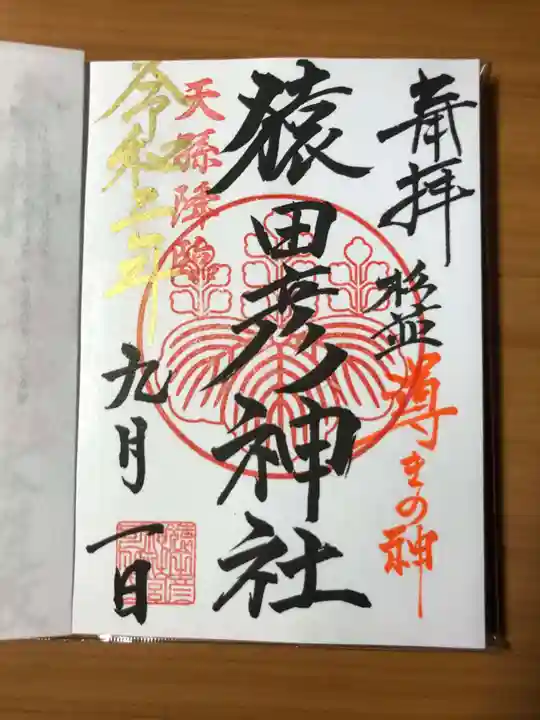 奉拝
杉並
導きの神
猿田彦神社
天孫降臨
令和二年
九月
一日